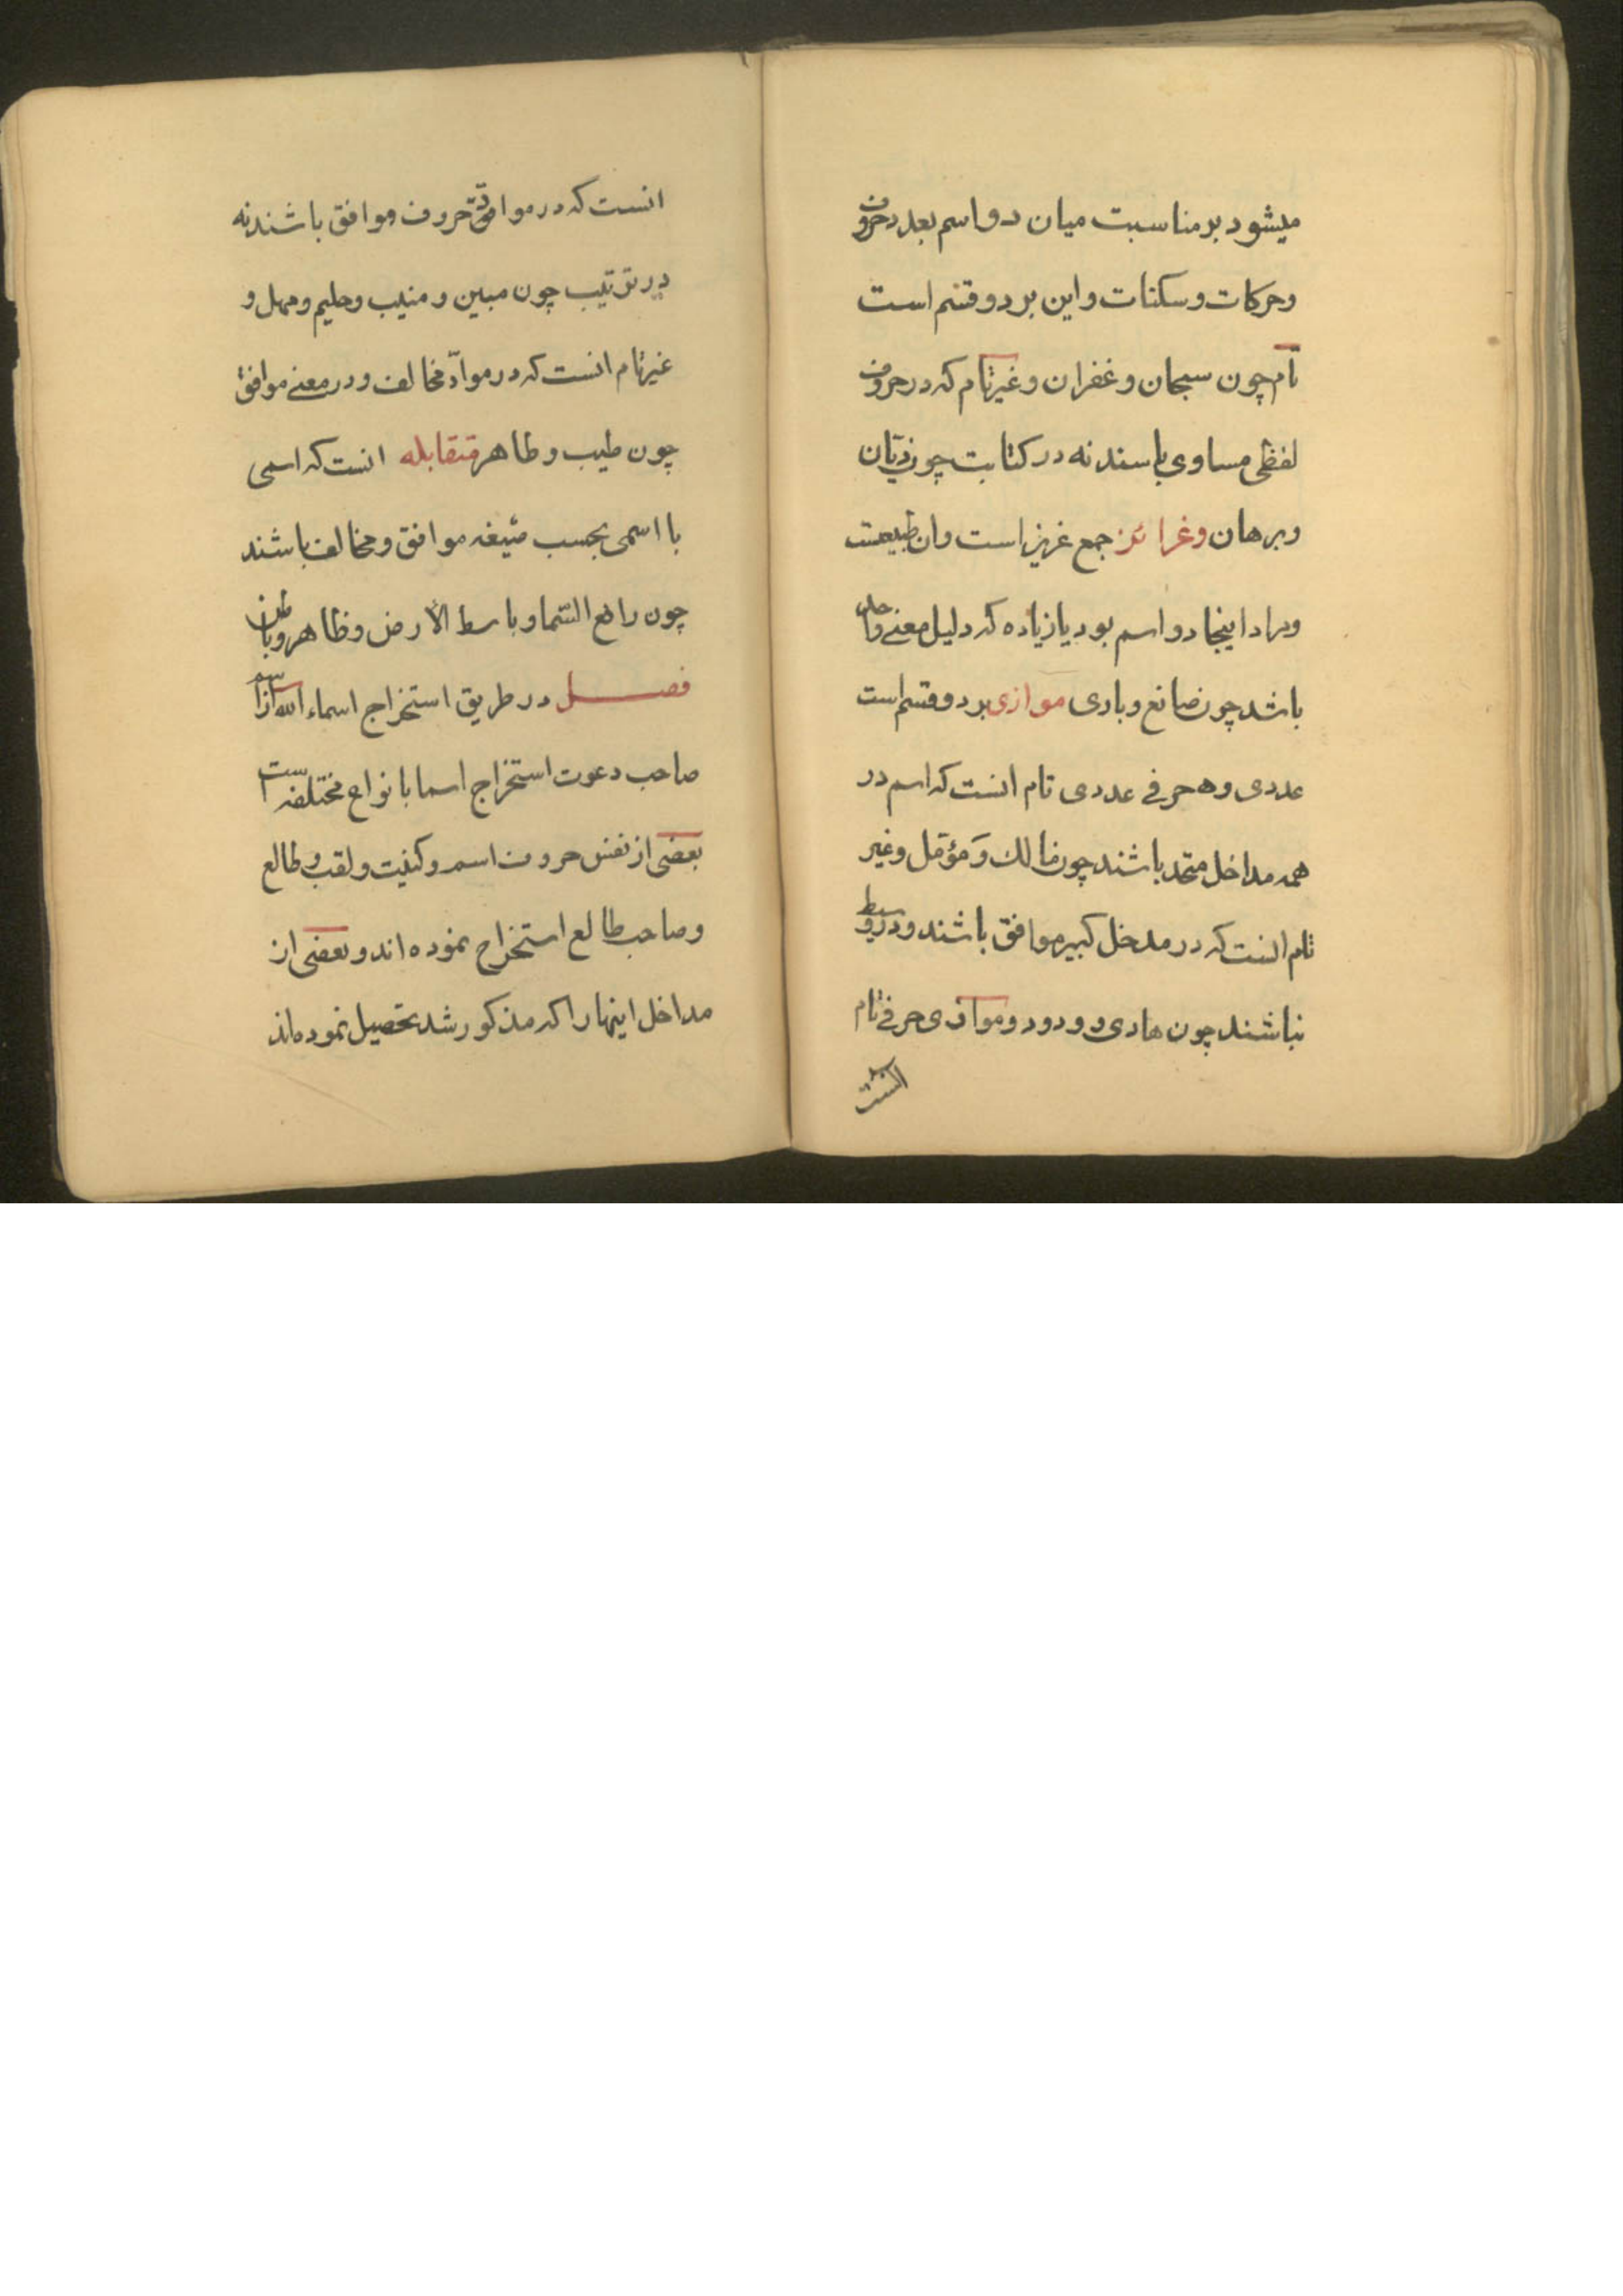 میشود بر مناسبت میان دو اسم بعدد حروف
وحرکات وسکنات واین بر دو قسم است
تام چون سبحان وغفران وغیر تام که در حروف
لفظی مساوی باسند نه در کتابت چون دیّان
وبرهان وغرائز جمع غریز است وان طبیعت
ومراد اینجا دو اسم بود یا زیاده که دلیل معنے واحد
باشد چون صانع وباری موازی بر دو قسم است
عددی وحرفے عددی تام انست که اسم در
همه مداخل متحد باشند چون مالك وَ مؤمل وغیر
تام انست که در مدخل کبیر موافق باشند و در وسیط
نباشند چون هادی و ودود وموازی حرفے تام
انست
انست که در موادّ حروف موافق باشند نه
در ترتیب چون مبین و منیب وحلیم وممهل و
غیر تام انست که در موادّ مخالف و در معنے موافق
چون طیب وطاهر متقابله انست که اسمی
با اسمی بحسب صیغه موافق ومخالف باشند
چون رافع السّما وباسط الأرض وظاهر وباطن
فصل در طریق استخراج اسماء الله از اسم
صاحب دعوت استخراج اسما بانواع مختلفه است
بعضی از نفس حروف اسم وکنیت ولقب وطالع
وصاحب طالع استخراج نموده اند وبعضی از
مداخل اینها را که مذکور شد تحصیل نموده اند